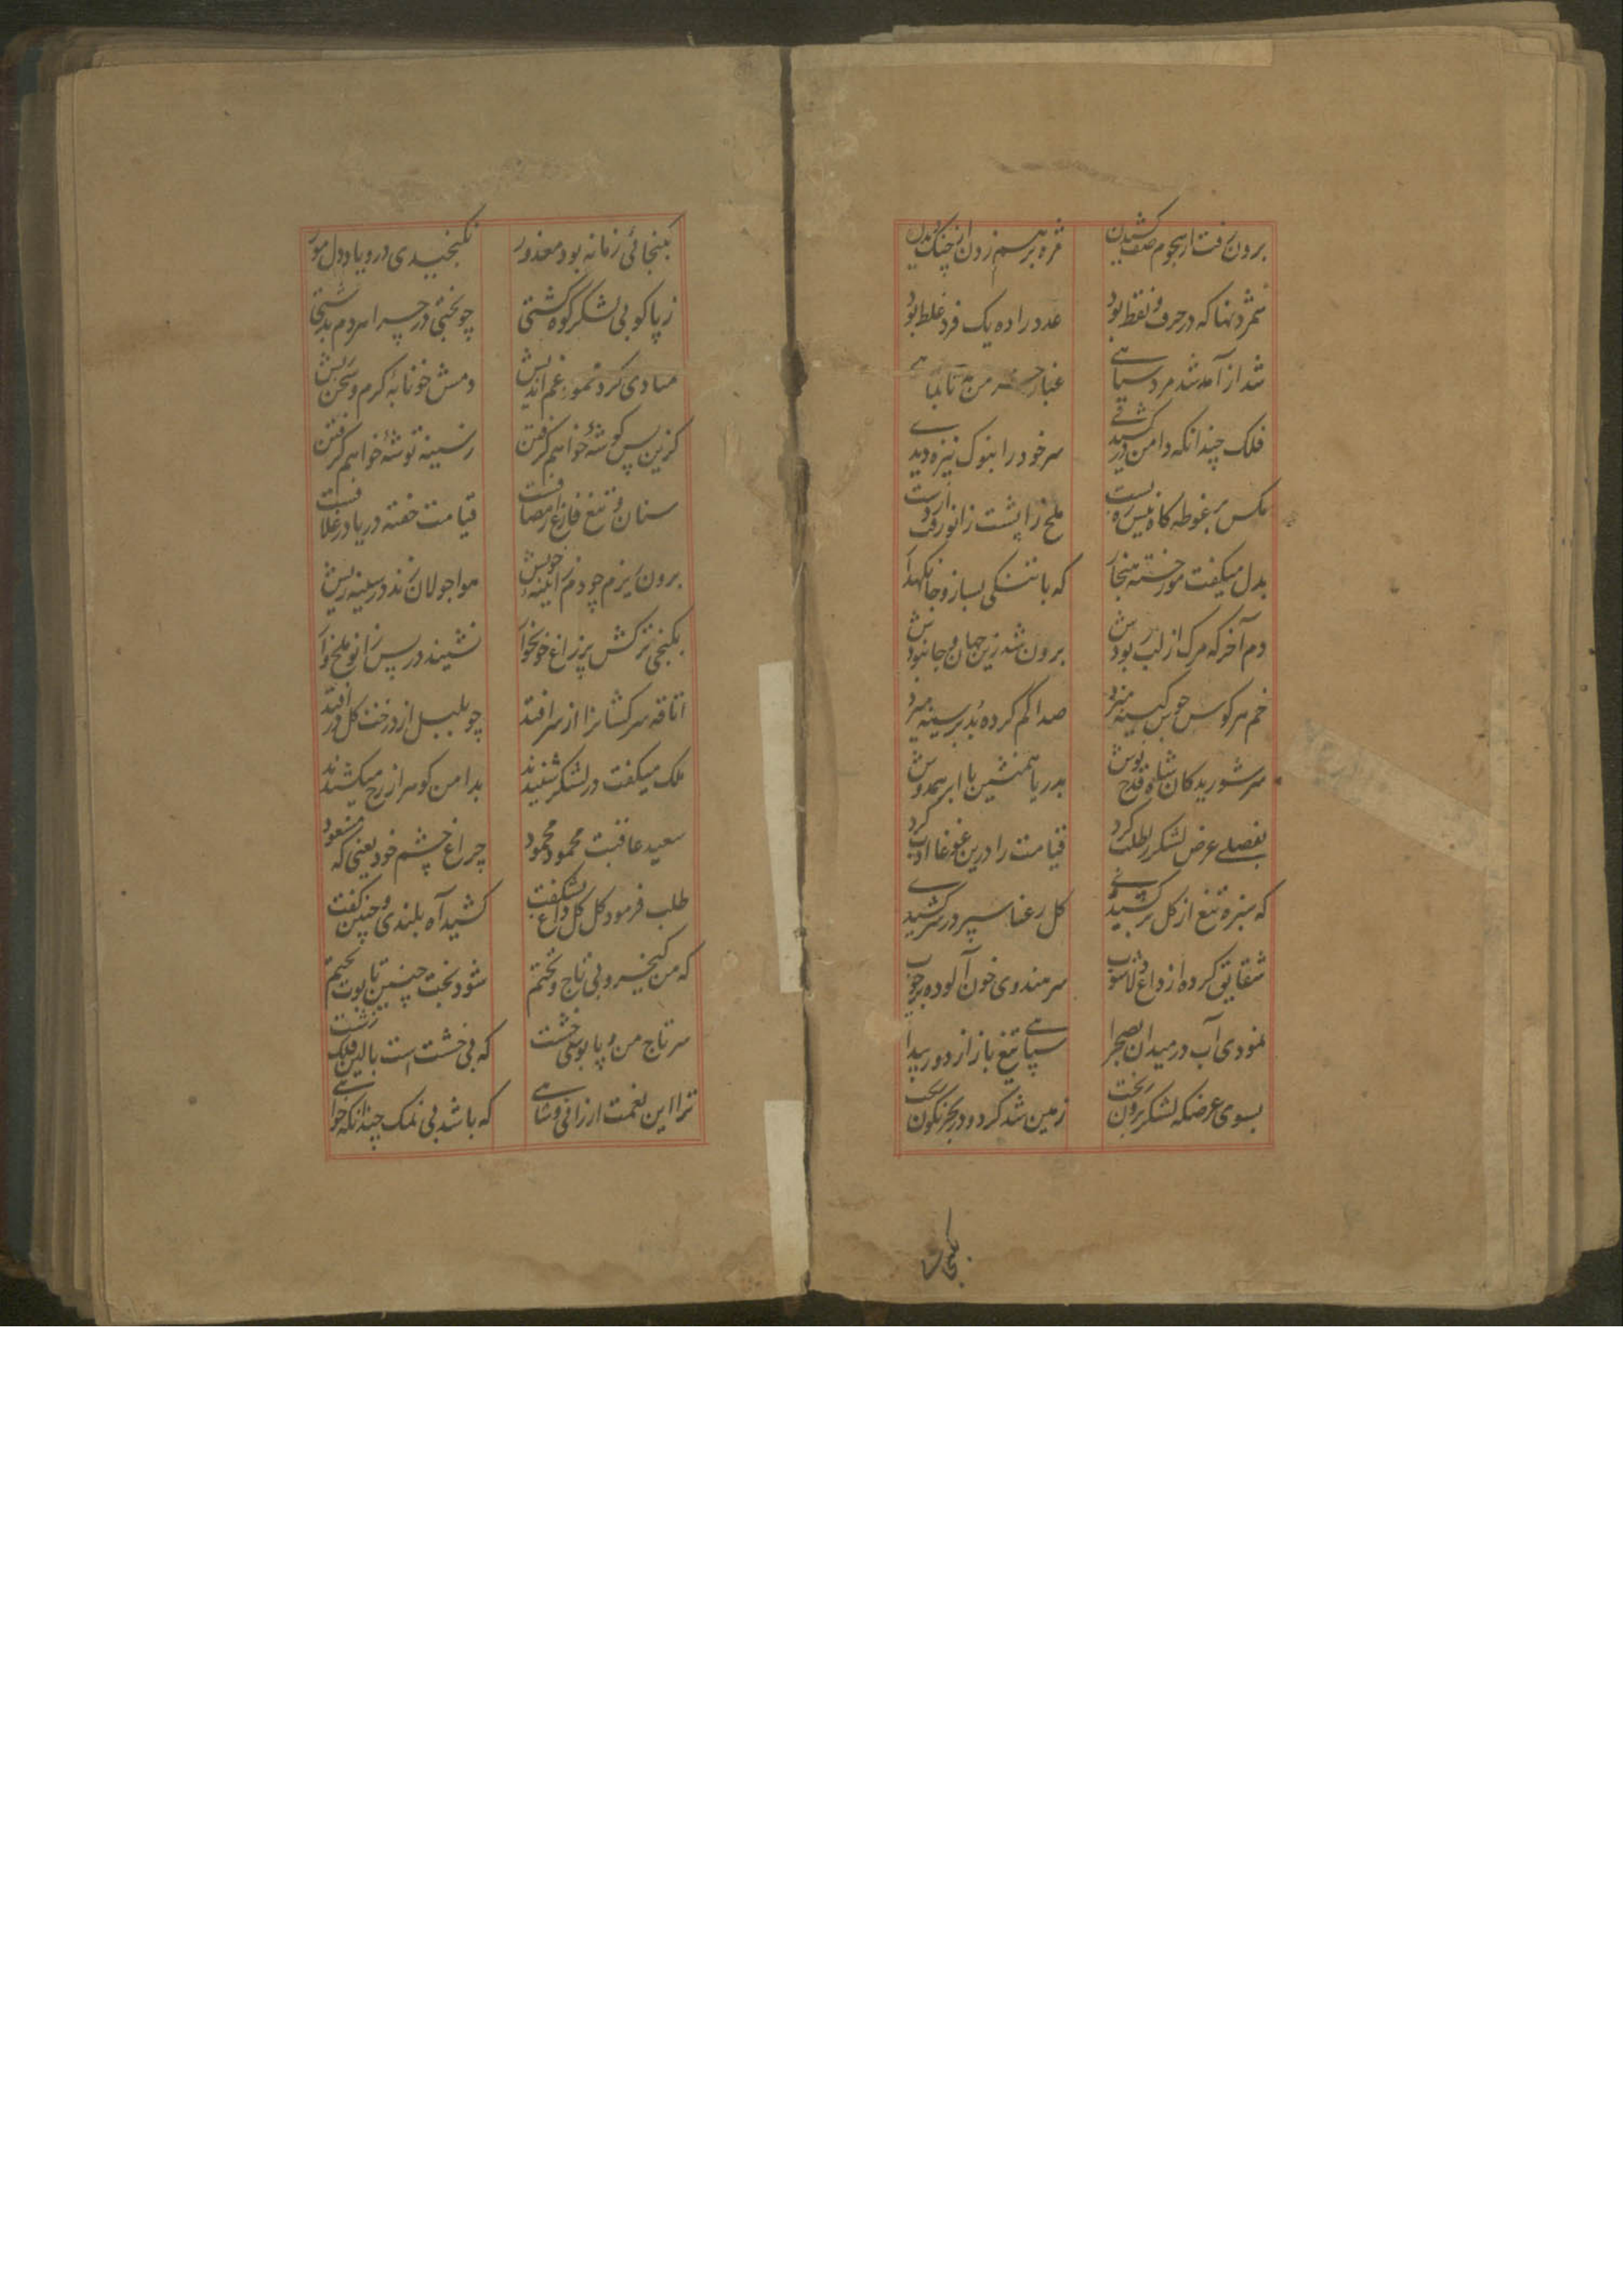 برون رفت از هجوم صف کشیدن
مژه برهم زدن از چنگ دیدن
شمردنها که در حرف و نقط بود
عدد را ده یک فرد غلط بود
شد از آمد شد مرد سپاهی
غبار من مه تا بماهی
فلک چندانکه دامن در کشیدی
سر خود را بنوک نیزه دیدی
مکس بر غوطه کاه نیش ره بست
ملخ را پشت زانو رفت از دست
بدل میکفت مور خسته هنجار
که با تنکی بساز و جا نکهدار
دم آخر که مرک از لب بودش
برون شد زین جهان و جا نبودش
خم هر کوس جوش کینه میزد
صدا کم کرده بد بر سینه میزد
سر شوریدکان شاه قدح نوش
بدریا همنشین با ابر همدوش
بفصلی عرض لشکر را طلب کرد
قیامت را درین غوغا ادب کرد
که سبزه تیغ از کل بر کشیدی
کل رعنا سپر در سر کشیدی
شقایق کرده از داغ دلاشوب
سر هندوی خون آلوده بر چوب
نمودی آب در میدان صحرا
سپاهی تیغ باز از دور پیدا
بسوی عرضکه لشکر برون ریخت
زمین شد کرد و در بحر نکون ریخت
بکنجا
بکنجائی زمانه بود معذور
نکنجیدی درو یاد دل مور
ز پا کوبی لشکر کوه کشتی
چو بختی در چرا هر دم بدشتی
منادی کرد غم اندیش
دمش خونابه کرم و سخن ریش
کزین پس کوشه خواهم کرفتن
ز سینه توشه خواهم کرفتن
سنان و تیغ فارغ از مصافست
قیامت خفته در یاد غلافست
برون ریزم چو دم ز آیینه خویش
هوا جولان زند در سینه ریش
بکنجی ترکش پر زاغ خونخوار
نشیند در پس زانو ملخ وار
اتاقه سرکشانرا از سر افتد
چو بلبل از درخت کل در افتد
ملک میکفت در لشکر شنیدند
بدامن کوهر از رخ میکشیدند
سعید عاقبت محمود محمود
چراغ چشم خود یعنی که مسعود
طلب فرمود کل کل داغ بشکفت
کشید آه بلندی و چنین کفت
که من کیخسرو بی تاج و تختم
شود تخت چنین تابوت بختم
سر تاج من و پابوسی خشت
که فی خشت است بالین فلک زشت
ترا این نعمت ارزانی و شاهی
که باشد بی نمک چندانکه خواهی